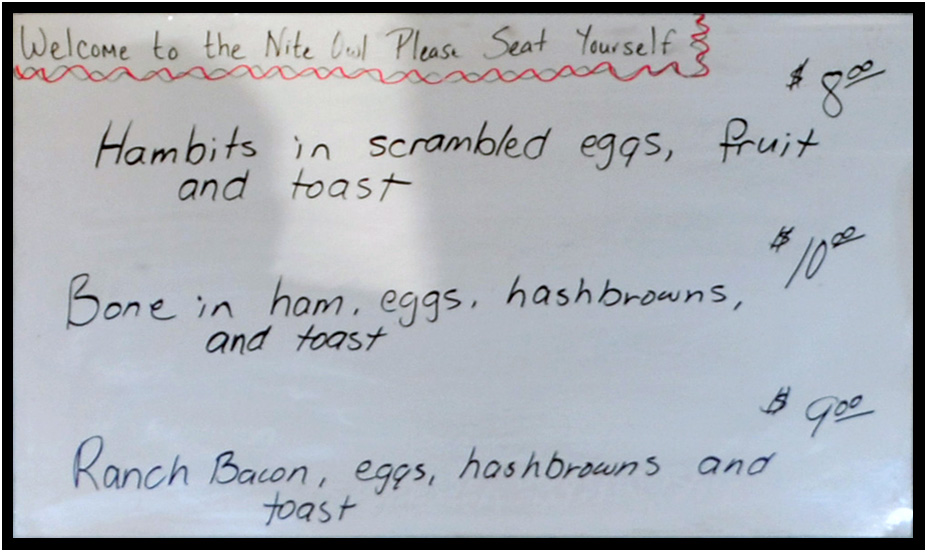 Welcome to the Nite Owl Please Seat Yourself
$ 8.00
Hambits in scrambled eggs, fruit
and toast
$ 10.00
Bone in ham, eggs, hashbrowns,
and toast
$ 9.00
Ranch Bacon, eggs, hashbrowns and
toast